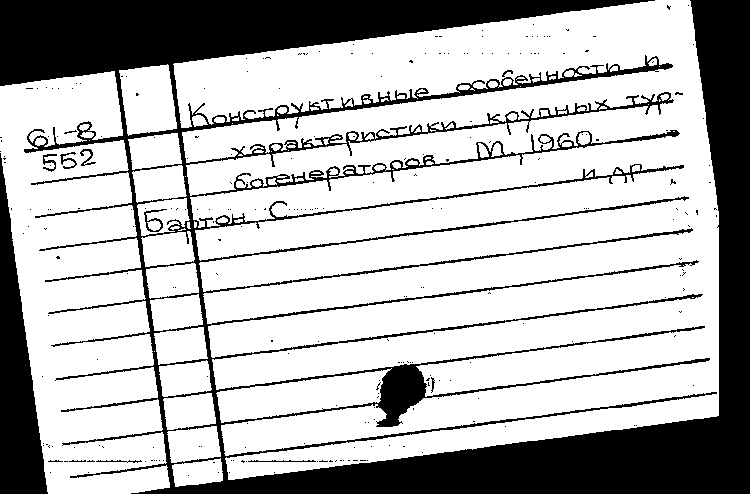 61-8
552
Конструктивные особенности и
характеристики крупных тур-
богенераторов. М., 1960.
и др
Бартон, С